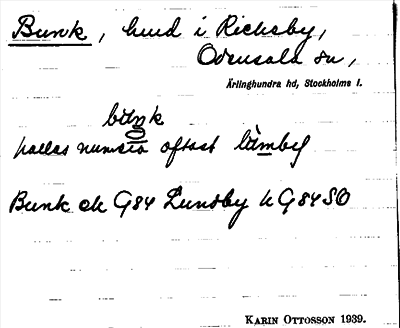 Bunk, hmd i Rickeby,
Odensala sn,
Ärlinghundra hd, Stockholms l.
kallas numera oftast
Bunk ek G84 Lunsby h G84SO
KARIN OTTOSSON 1939.